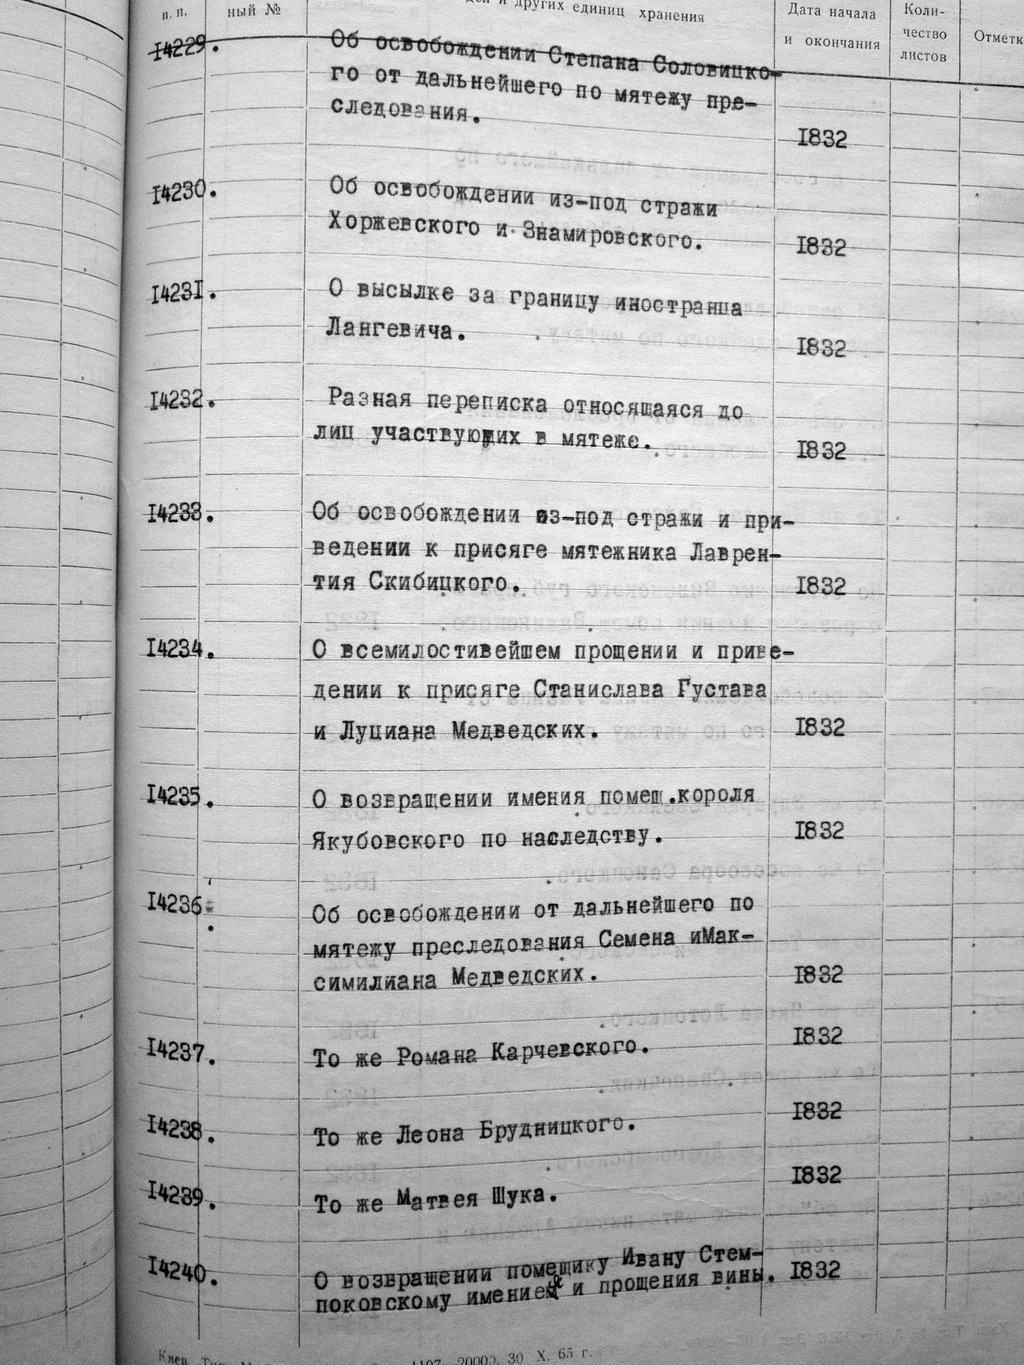 п. п. ный № и других единиц хранения Дата начала и окончания Коли-чество листов
14229. Об освобождении Степана Соловицко-
го от дальнейшего по мятежу пре-
следования. 1832
14230. Об освобождении из-под стражи
Хоржевского и Знамировского. 1832
14231. О высылке за границу иностранца
Лангевича. 1832
14232. Разная переписка относящаяся до
лиц участвующих в мятеже. 1832
14233. Об освобождении из-под стражи и при-
ведении к присяге мятежника Лаврен-
тия Скибицкого. 1832
14234. О всемилостивейшем прощении и приве-
дении к присяге Станислава Густава
и Луциана Медведских. 1832
14235. О возвращении имения помещ.короля
Якубовского по наследству. 1832
14236. Об освобождении от дальнейшего по
мятежу преследования Семена иМак-
симилиана Медведских. 1832
14237. То же Романа Карчевского. 1832
14238. То же Леона Брудницкого. 1832
14239. То же Матвея Щука. 1832
14240. О возвращении помещику Ивану Стем-
поковскому имением и прощения вины. 1832
20000, 30 X. 65 г.